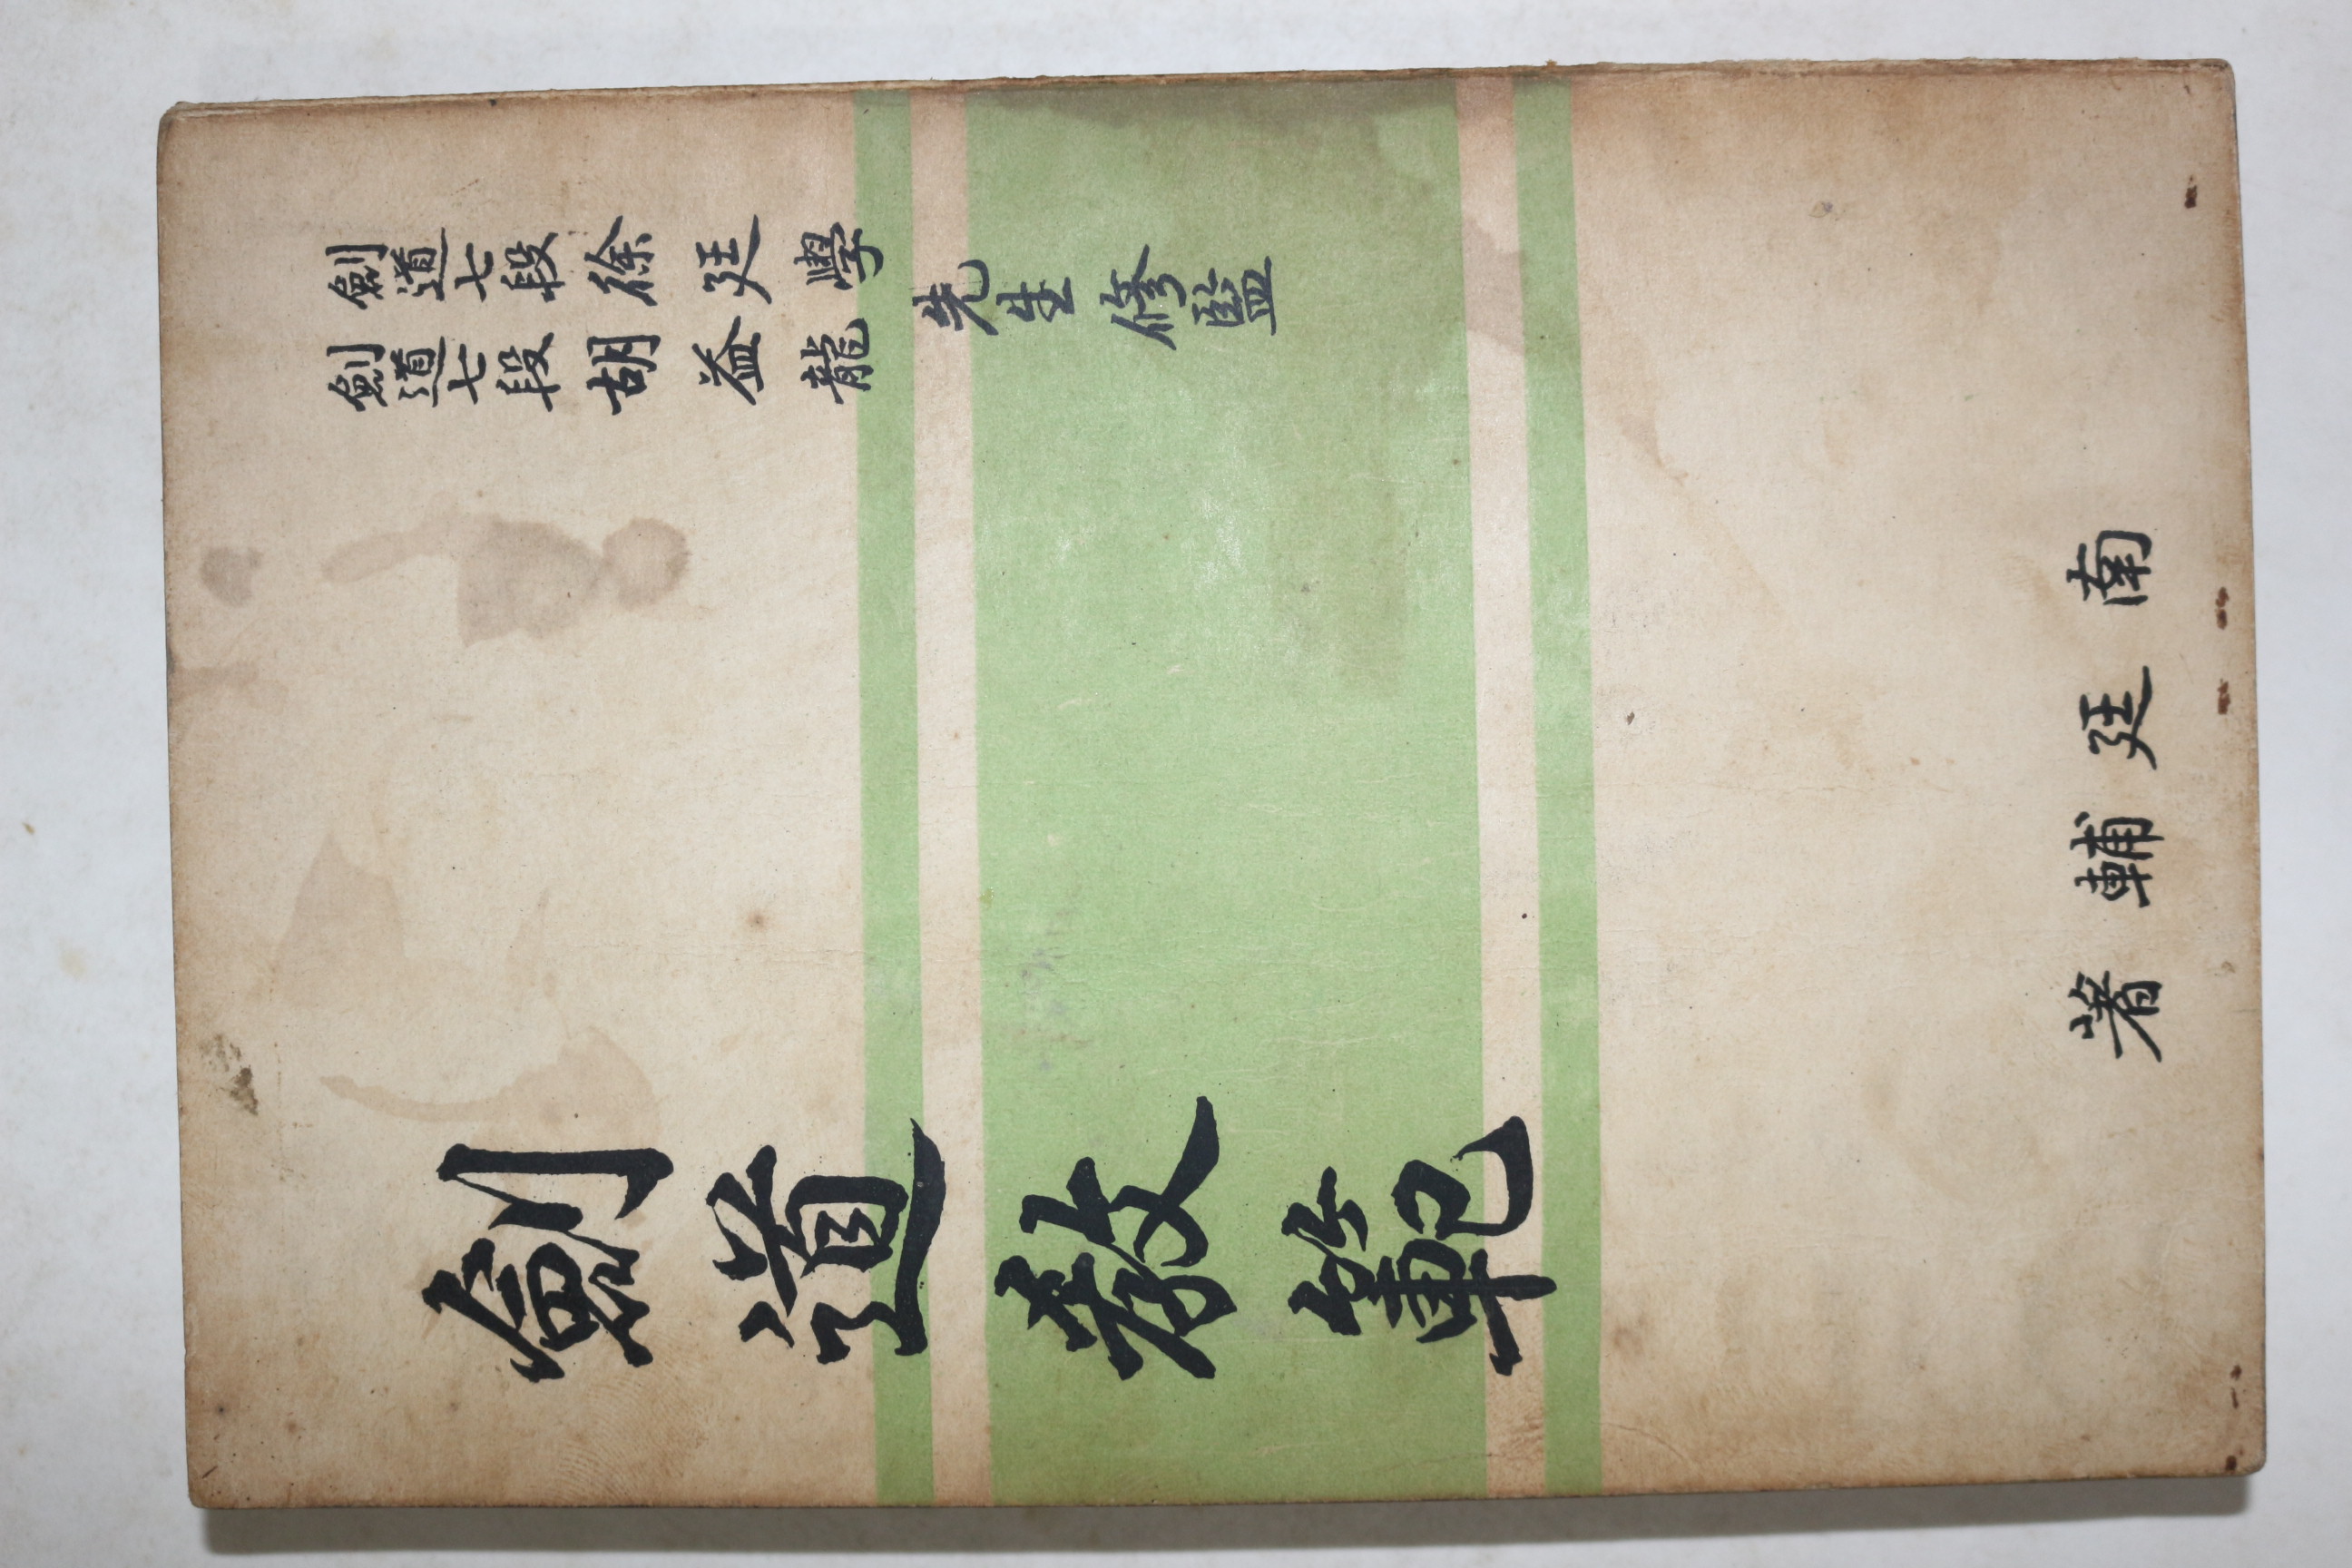 劍道七段徐廷學
劍道七段胡益龍
先生修監
劍道教範
南廷輔著